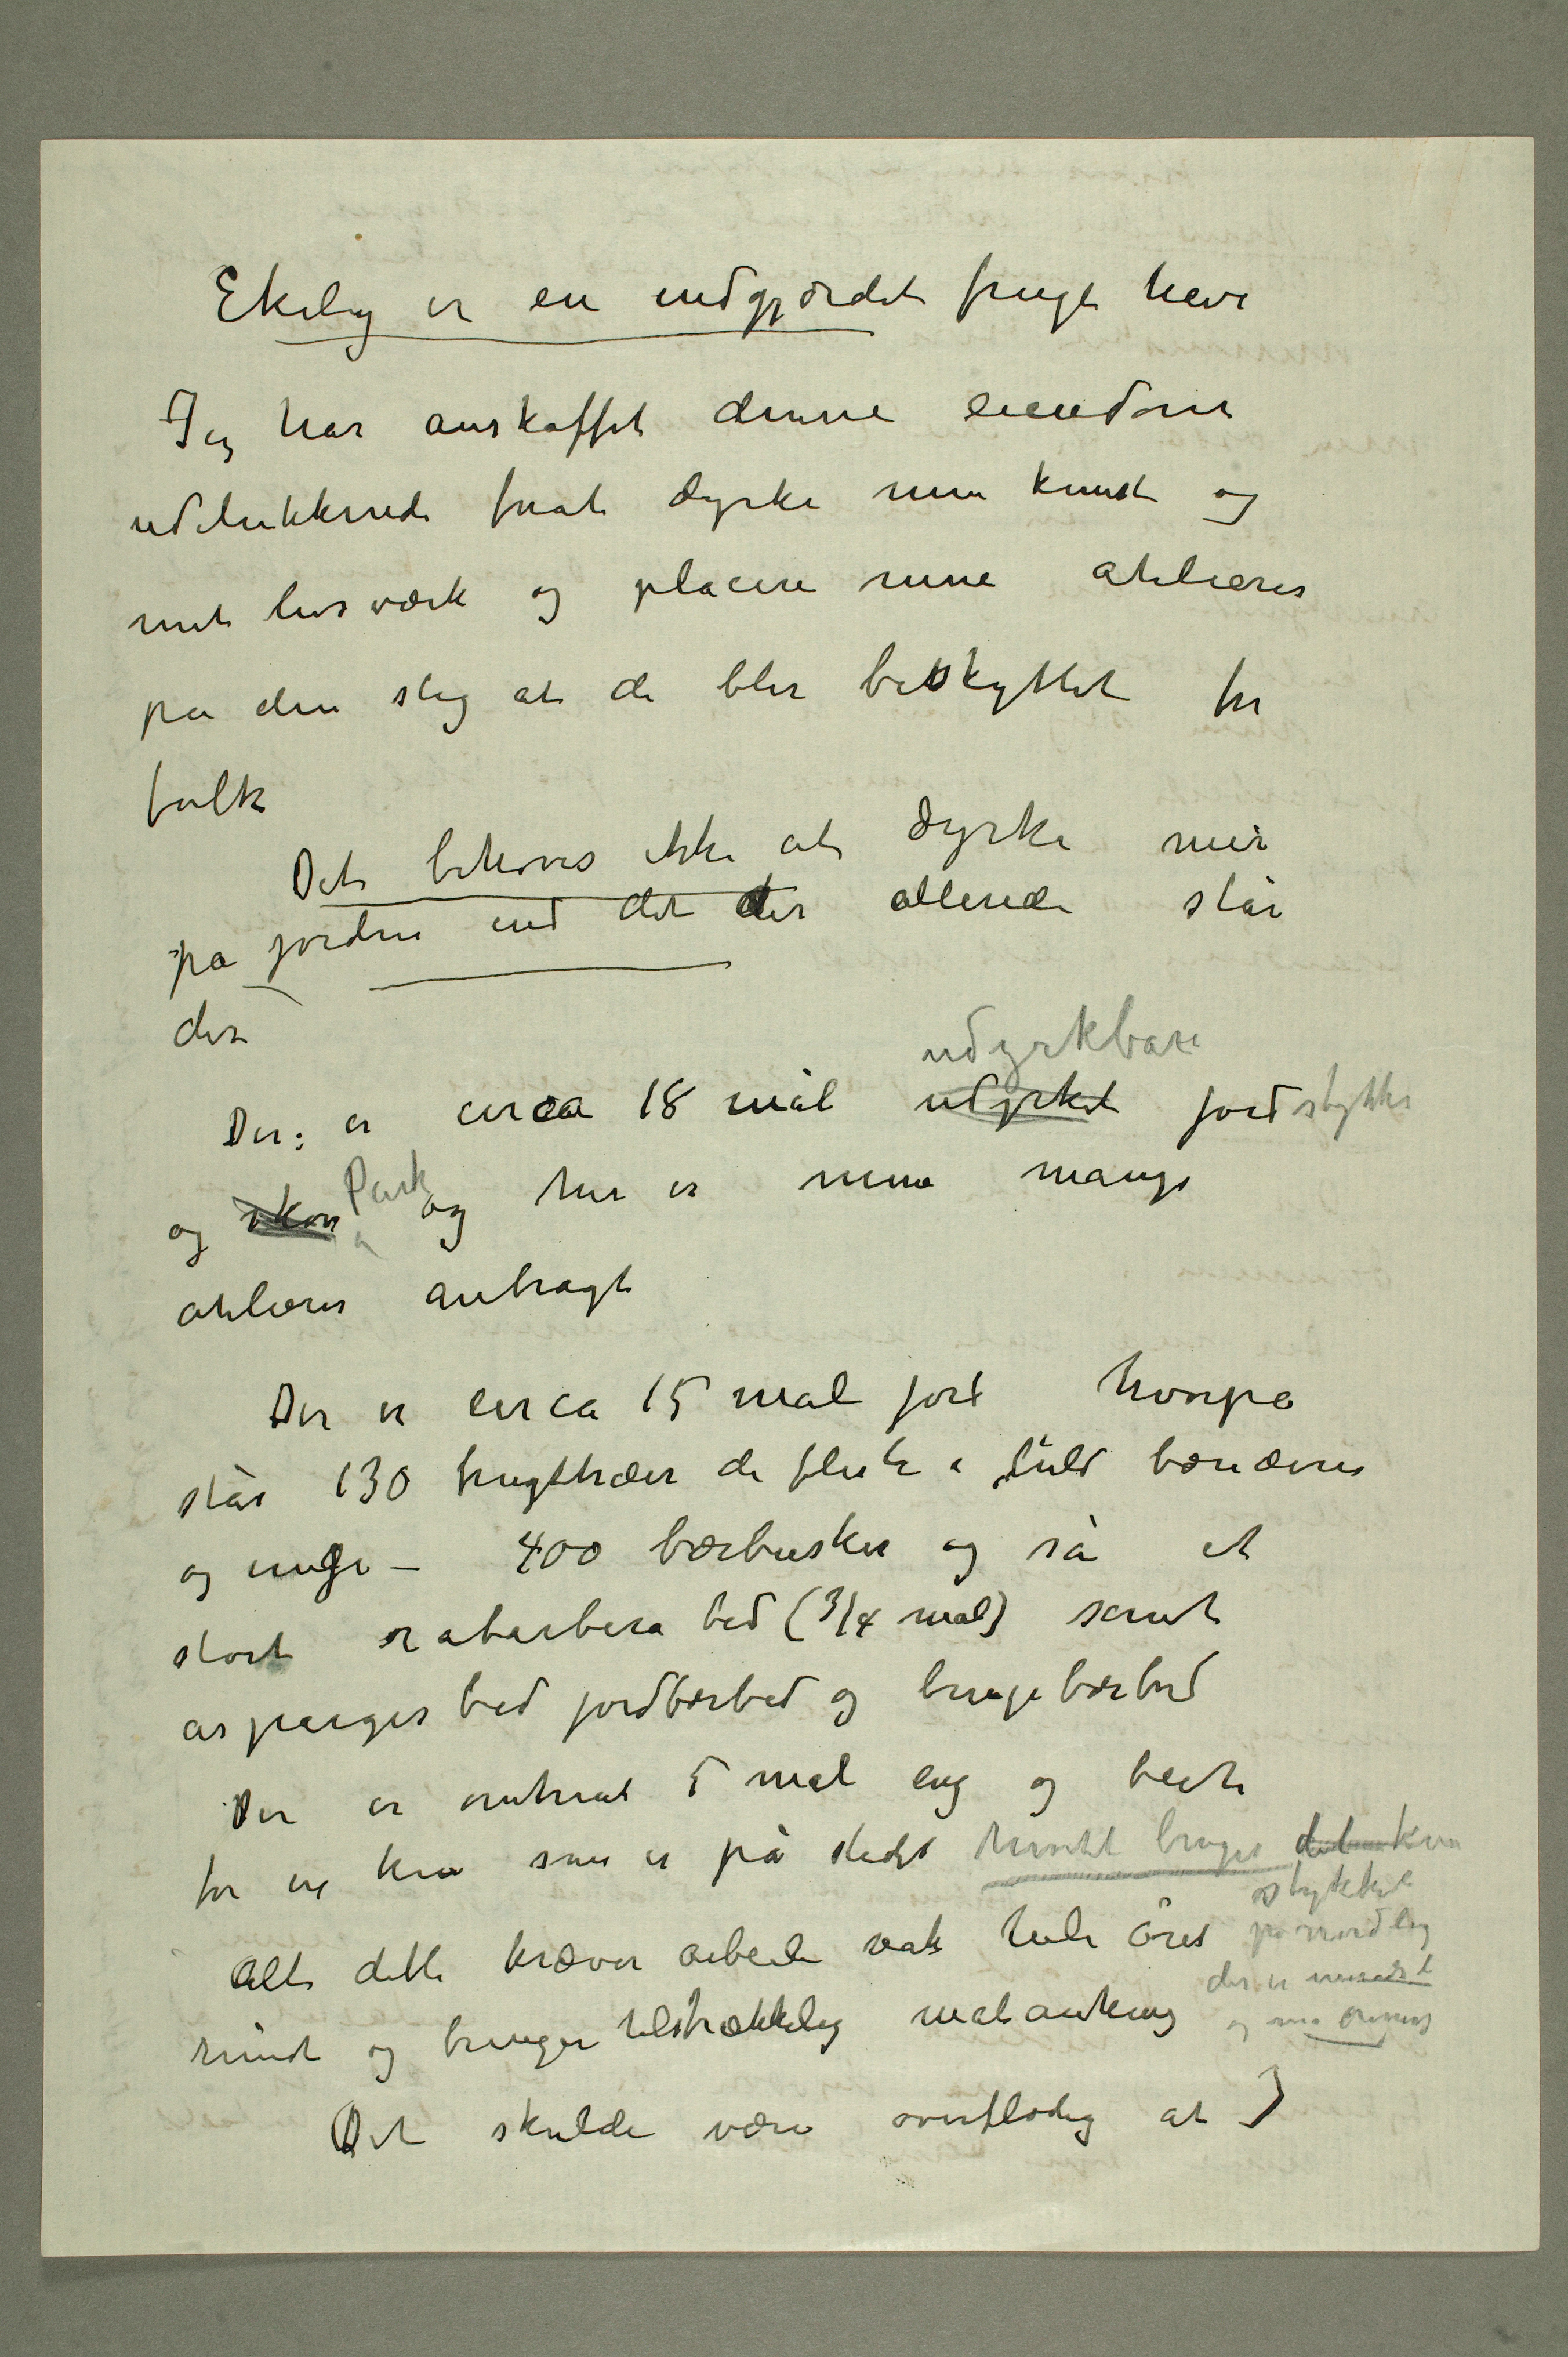 Ekely er en indgjærdet frugt have
Jeg har anskaffet denne eiendom
udelukkende forat dyrke min kunst og
mit livsværk og placere mine atelierer
på den slag at de blir beskyttet for
folk
Det behøves ikke at dyrke mer
på jorden end det der allerede står
der
udyrkbare
Der er circa 18 mål udyrket jordstykke
Park
og skov og her er mine mange
atelierer anbragt
Der er circa 15 mål jord hvorpå
står 130 frugttræer de fleste i fuld bæreævne
og unge – 400 bærbusker og så et
stort rabarbera bed (3/4 mål) samt
asparges bed jordbærbed og bringebærbed
Der er omtrent 5 mål eng og beite
for en ku som er på stedet hvortil bruges
stykket
Alt dette kræver arbeide nok hele året på nordlig
der er
rundt og bringer tilstrækkelig matauking og
Det skulde være overflødig at